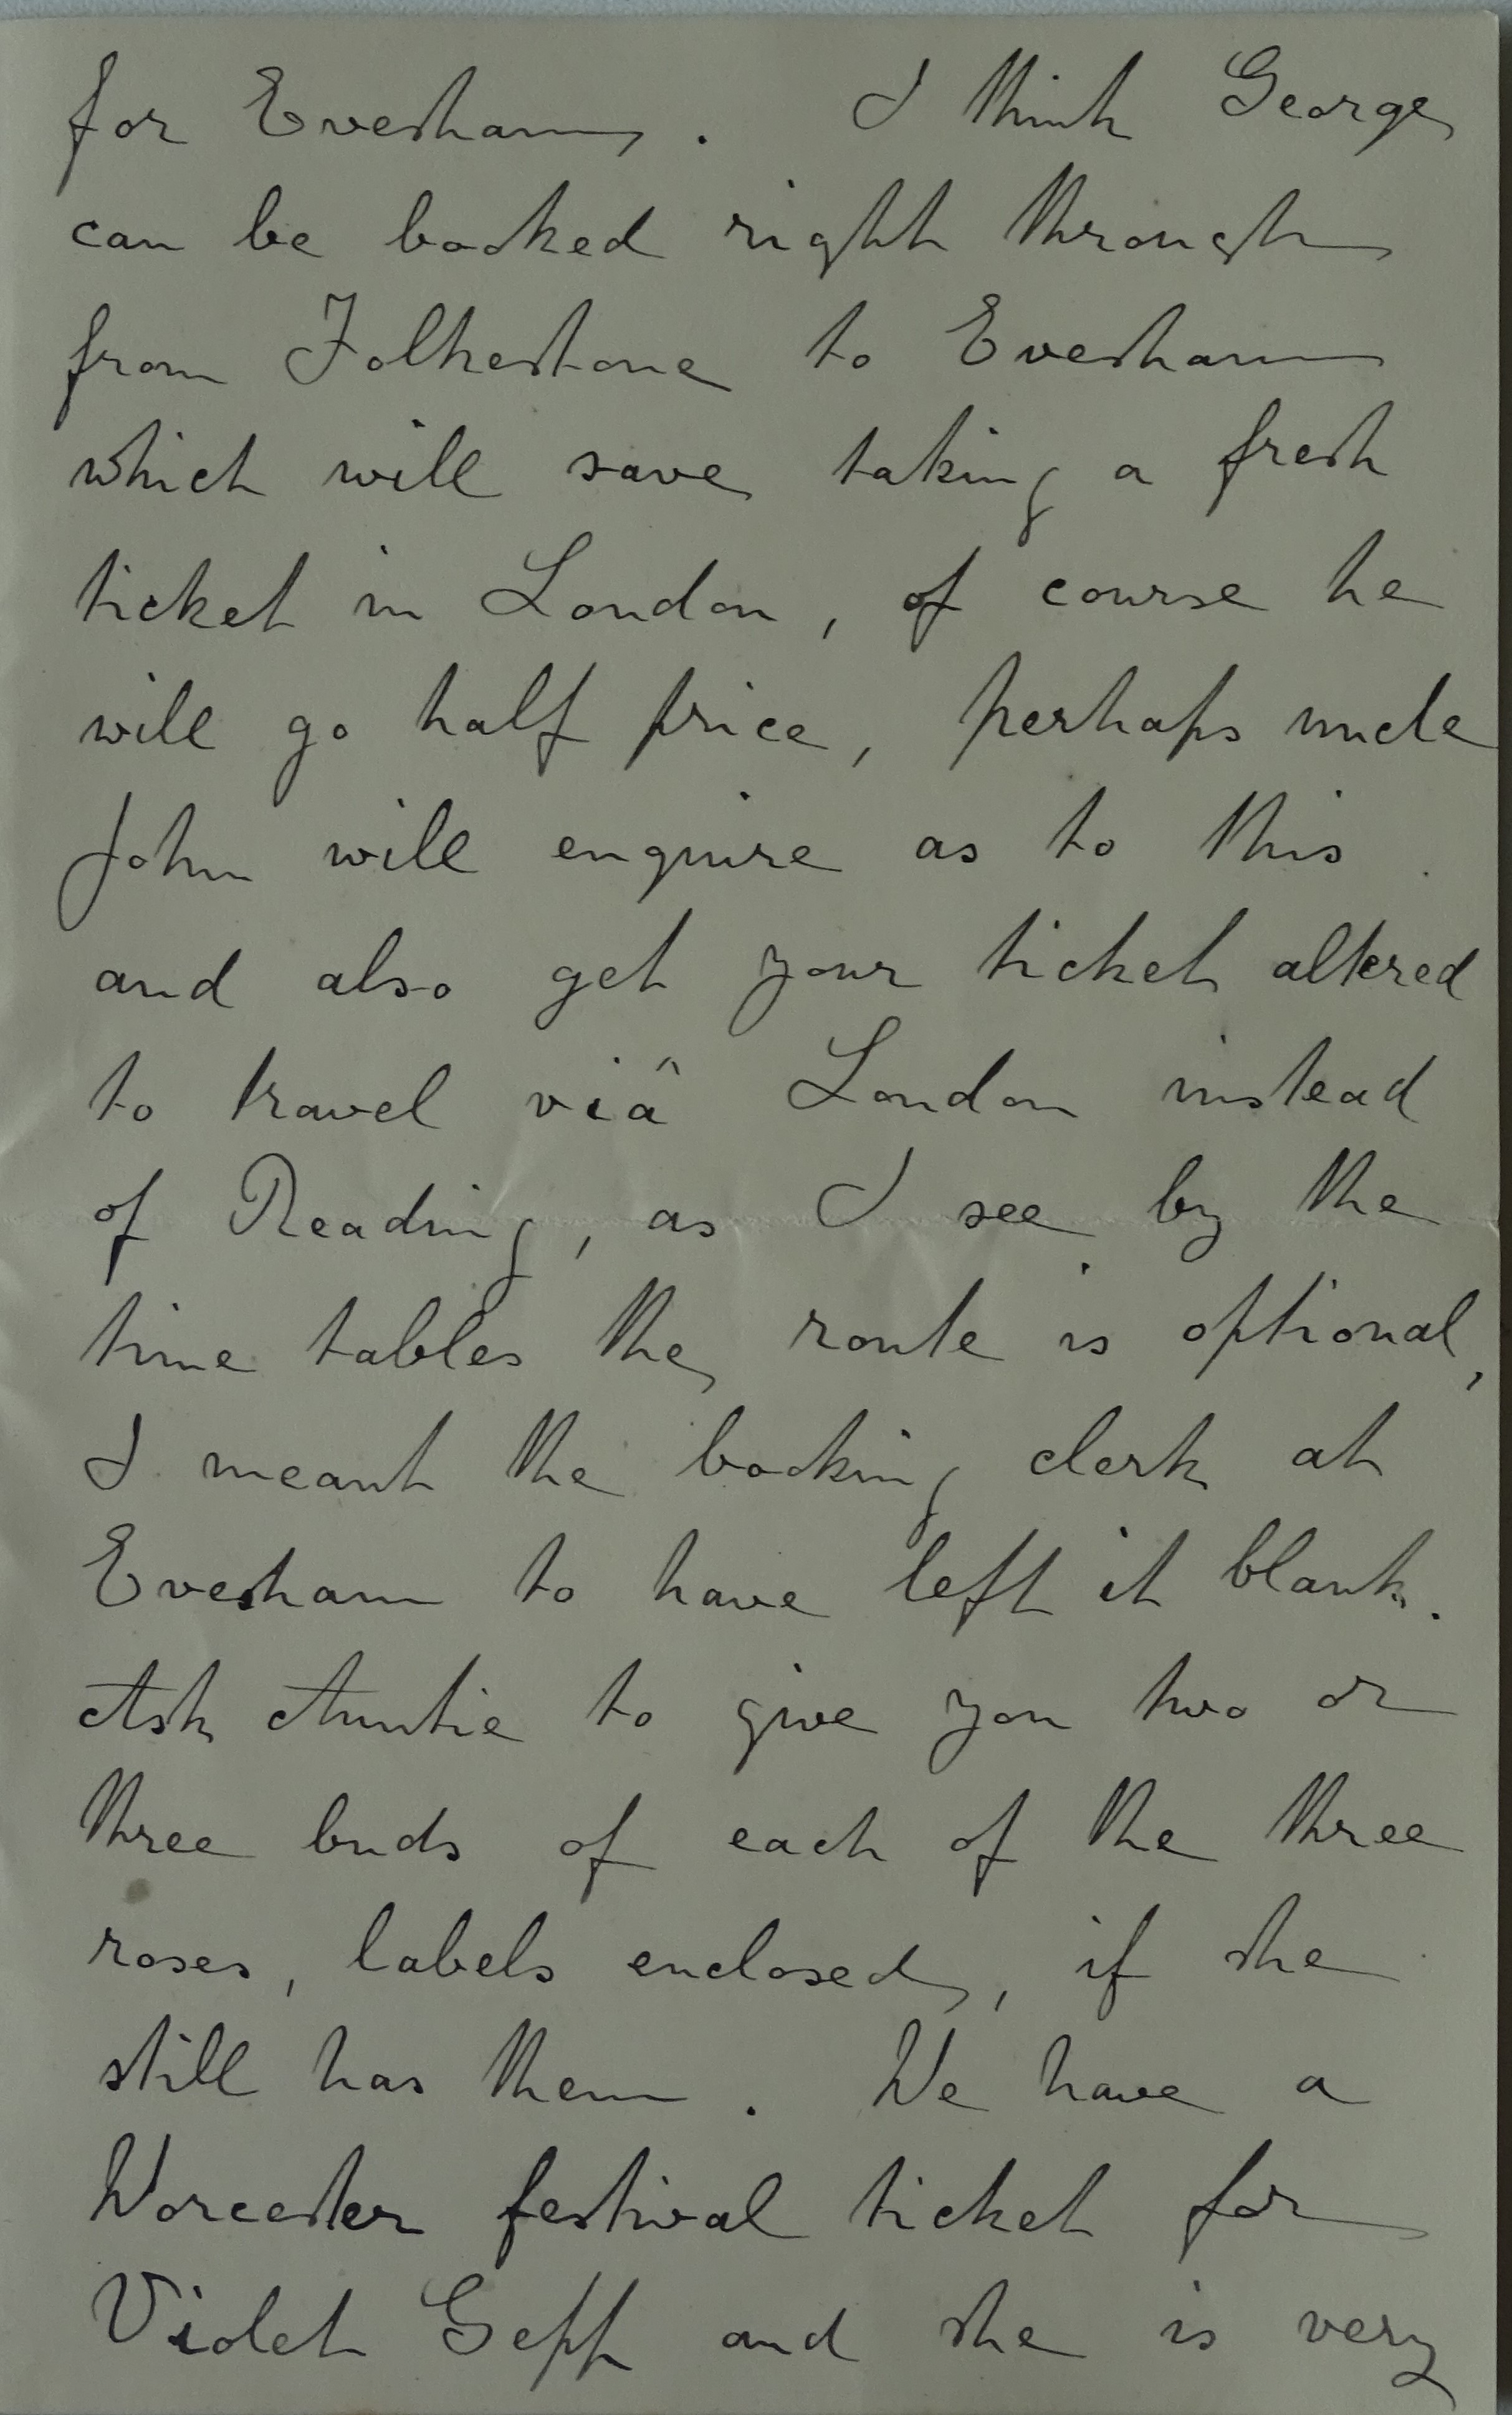 for Evesham. I think George
can be booked right through
from Folkestone to Evesham
which will save taking a fresh
ticket in London, of course he
will go half price, perhaps uncle
John will enquire as to this
and also get your ticket altered
to travel viâ London instead
of Reading, as I see by the
time tables the route is optional,
I meant the booking clerk at
Evesham to have left it blank.
Ask Auntie to give you two or
three buds of each of the three
roses, labels enclosed, if she
still has them. We have a
Worcester festival ticket for
Violet Gepp and she is very